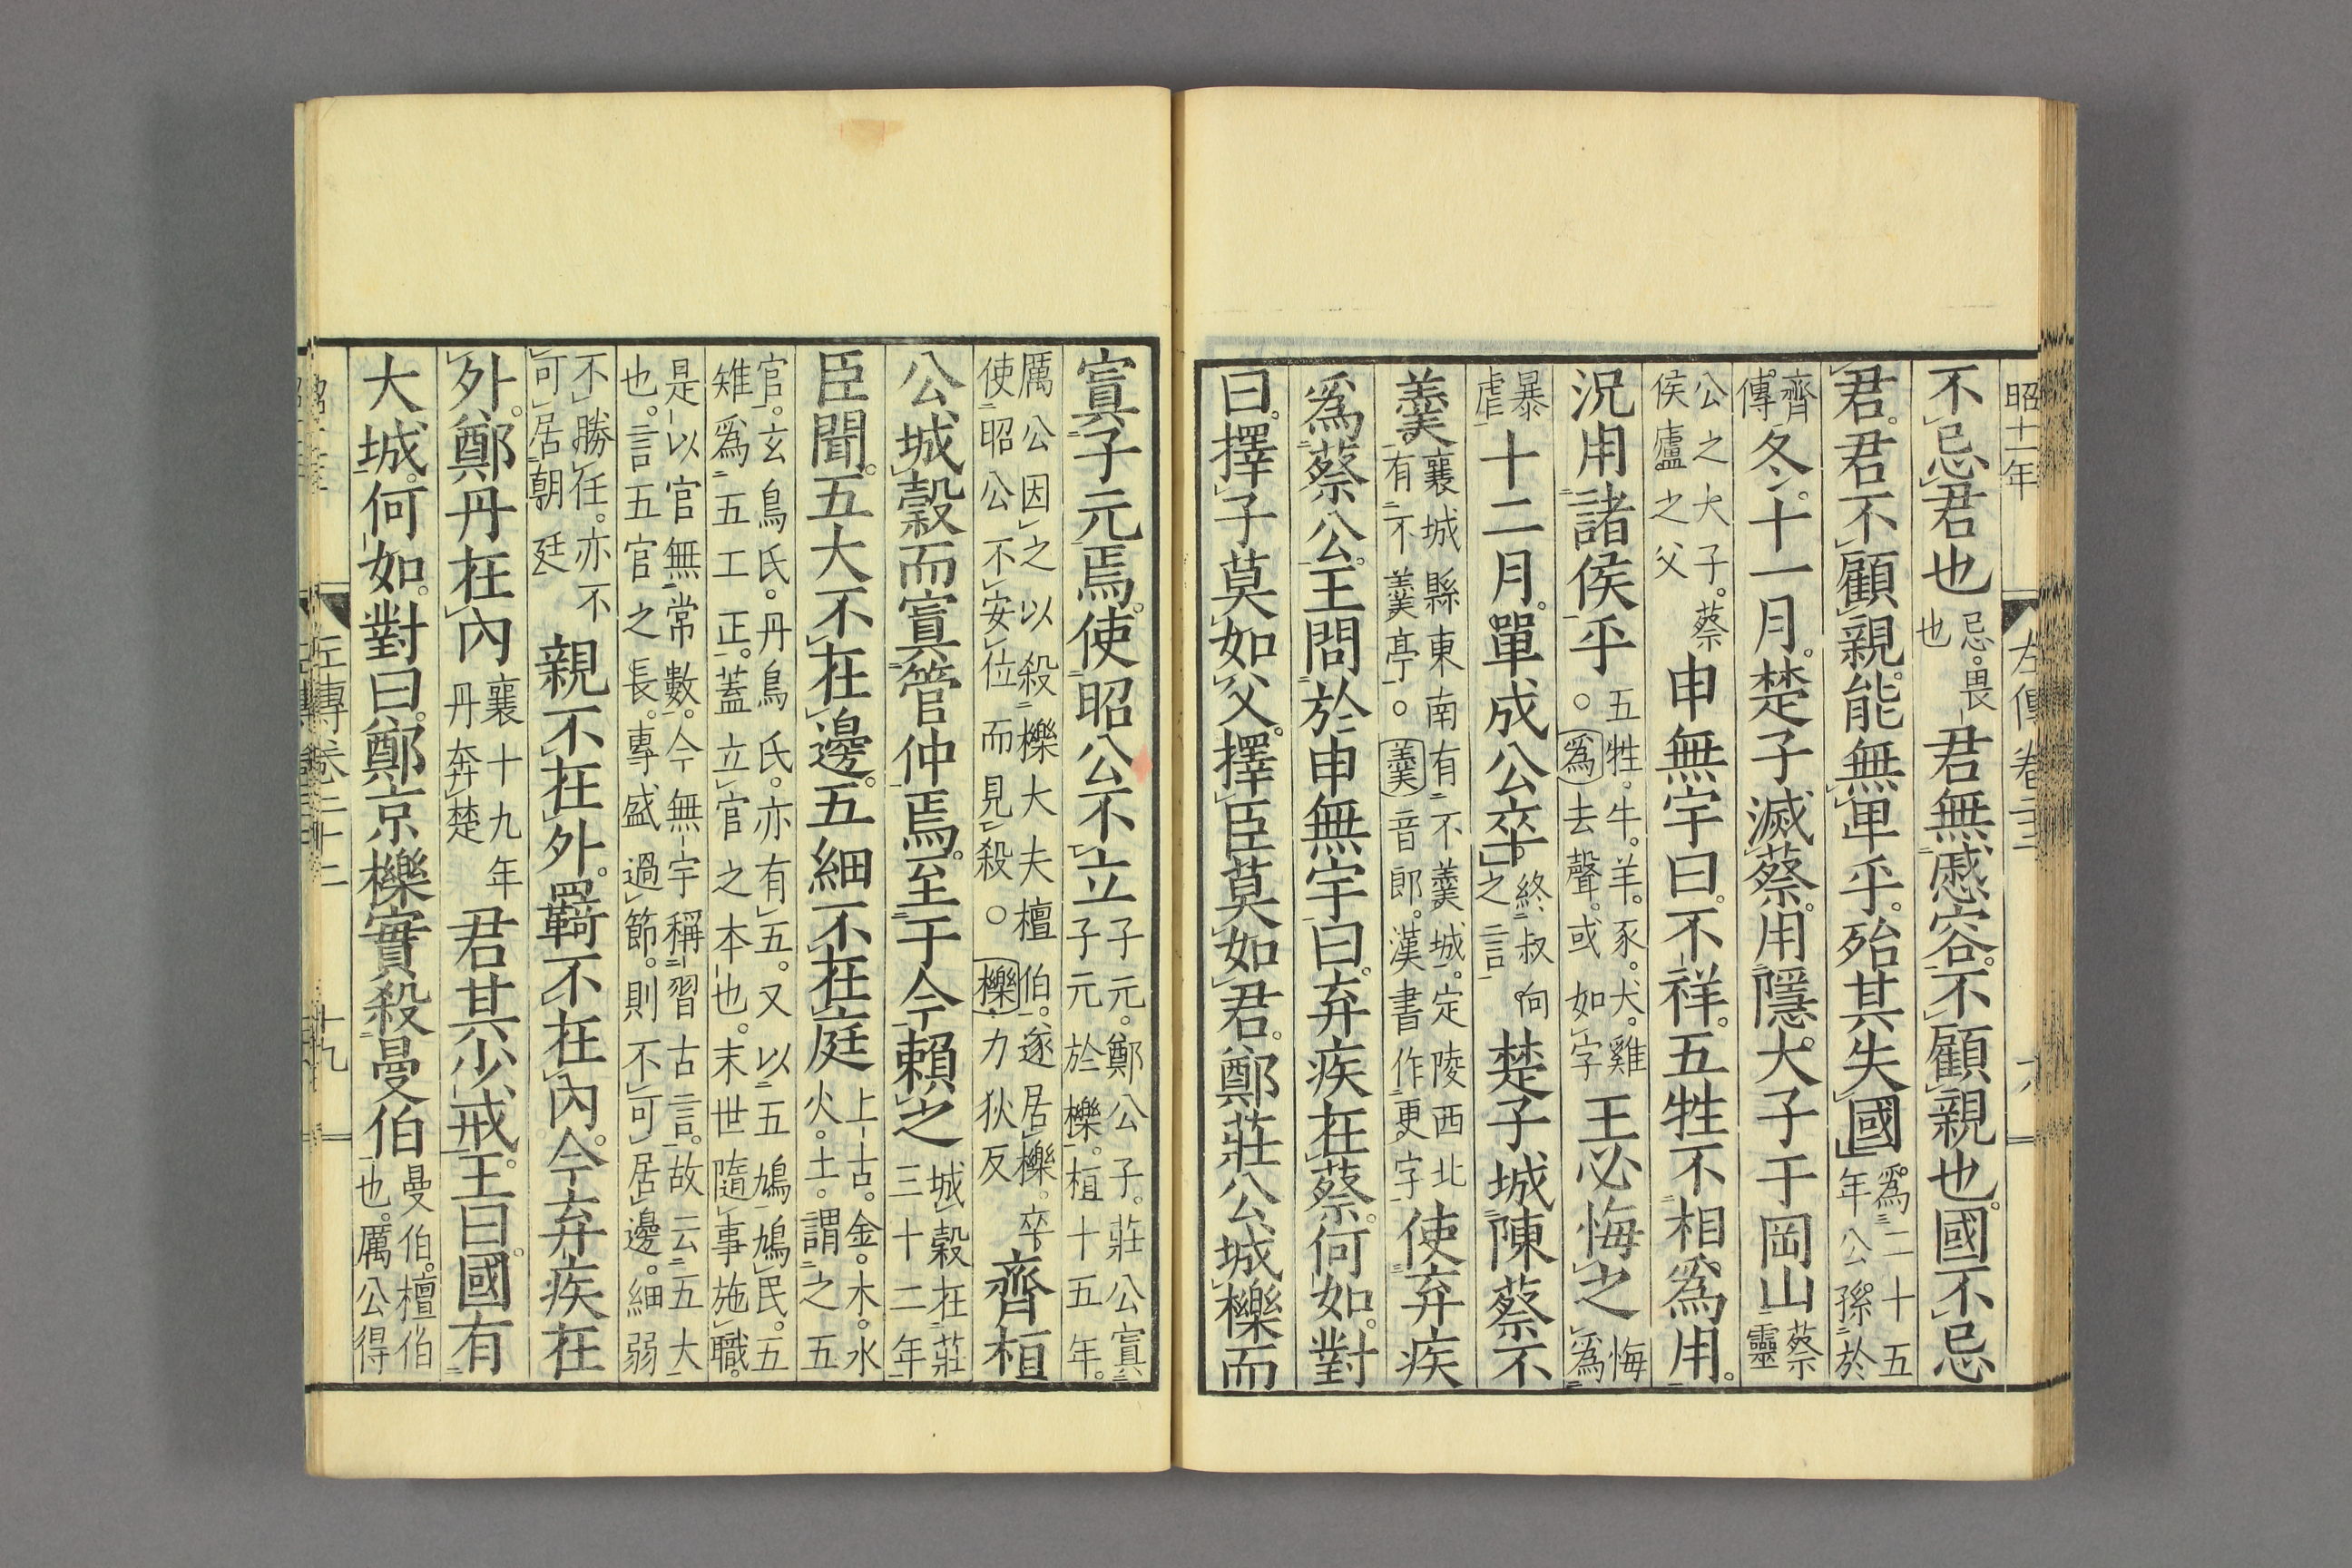 昭十一年
左傳卷二十二
不忌君也忌。畏也君無慼容。不顧親也。國不忌
君。君不顧親。能無卑乎。殆其失國爲二十五年公孫於
齊傳。冬。十一月。楚子滅蔡。用隱大子于岡山蔡靈
公之大子。蔡侯廬之父申無宇曰。不祥。五牲不相爲用。
況用諸侯乎五牲。牛。羊。豕。犬。雞。○爲去聲。或如字王必悔之悔爲
暴虐十二月。單成公卒。終叔向之言楚子城陳蔡不
羹。襄城縣東南有不羹城。定陵西北有不羹亭。○羹音郎。漢書作更字使弃疾
爲蔡公。王問於申無宇曰。弃疾在蔡。何如。對
曰。擇子莫如父。擇臣莫如君。鄭莊公城櫟而
寘子元焉。使昭公不立子元。鄭公子。莊公寘子元於櫟。桓十五年。
厲公因之以殺櫟大夫檀伯。遂居櫟。卒使昭公不安位而見殺。○櫟力狄反齊桓
公城穀而寘管仲焉。至于今賴之城穀在莊三十二年
臣聞。五大不在邊。五細不在庭上古。金。木。水火。土。謂之五
官。玄鳥氏。丹鳥氏。亦有五。又以五鳩鳩民。五雉爲五工正。蓋立官之本也。末世隨事施職。
是以官無常數。今無宇稱習古言。故云五大也。言五官之長。專盛過節。則不可居邊。細弱
不勝任。亦不可居朝廷親不在外。羈不在內。今弃疾在
外。鄭丹在內襄十九年丹奔楚君其少戒。王曰。國有
大城。何如。對曰。鄭京櫟實殺曼伯曼伯。檀伯也。厲公得
左傳卷二十二
十九